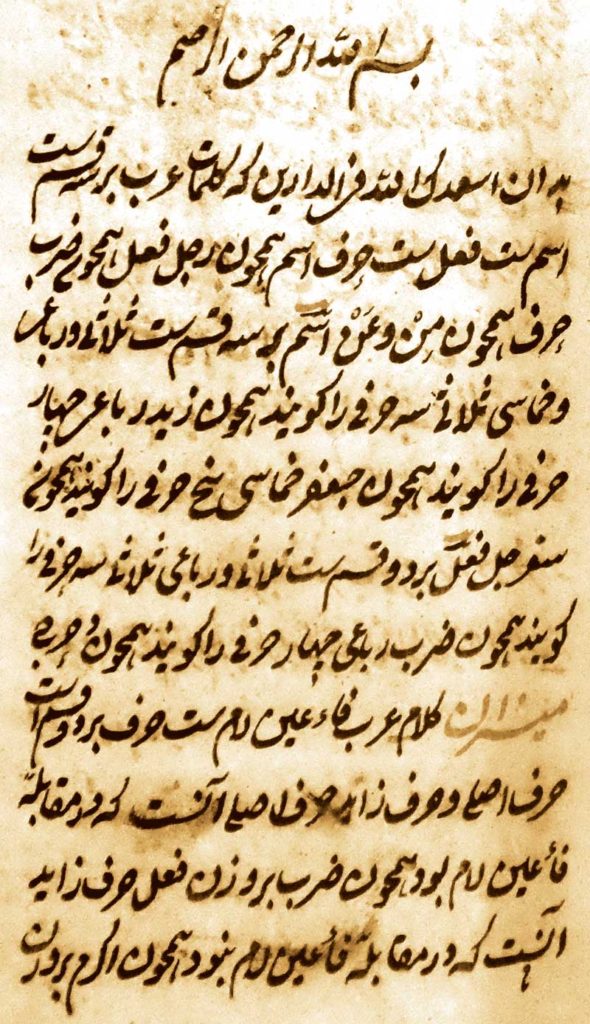 بسم الله الرحمن الرحیم
بدان اسعدک الله فی الدارین که کلمات عرب بر سه قسمست
اسم ست فعل ست حرف اسم همچون رجل فعل همچون ضرب
حرف همچون مِنْ وعَنْ اسم بر سه قسم ست ثلاثی ورباعی
وخماسی ثلاثی سه حرفی را کویند همچون زید رباعی چهار
حرفی را کویند همچون جعفر خماسی پنج حرفی را کویند همچون
سفرجل فعل بر دو قسم ست ثلاثی ورباعی ثلاثی سه حرفی را
کویند همچون ضرب رباعی چهار حرفی را کویند همچون دحرج
میزان کلام عرب فاء عین لام ست حرف بر دو قسم است
حرف اصلی وحرف زاید حرف اصلی آنست که در مقابلهٔ
فاء عین لام بود همچون ضرب بر وزن فعل حرف زاید
آنست که در مقابلهٔ فاء عین لام نبود همچون اکرم بر وزن